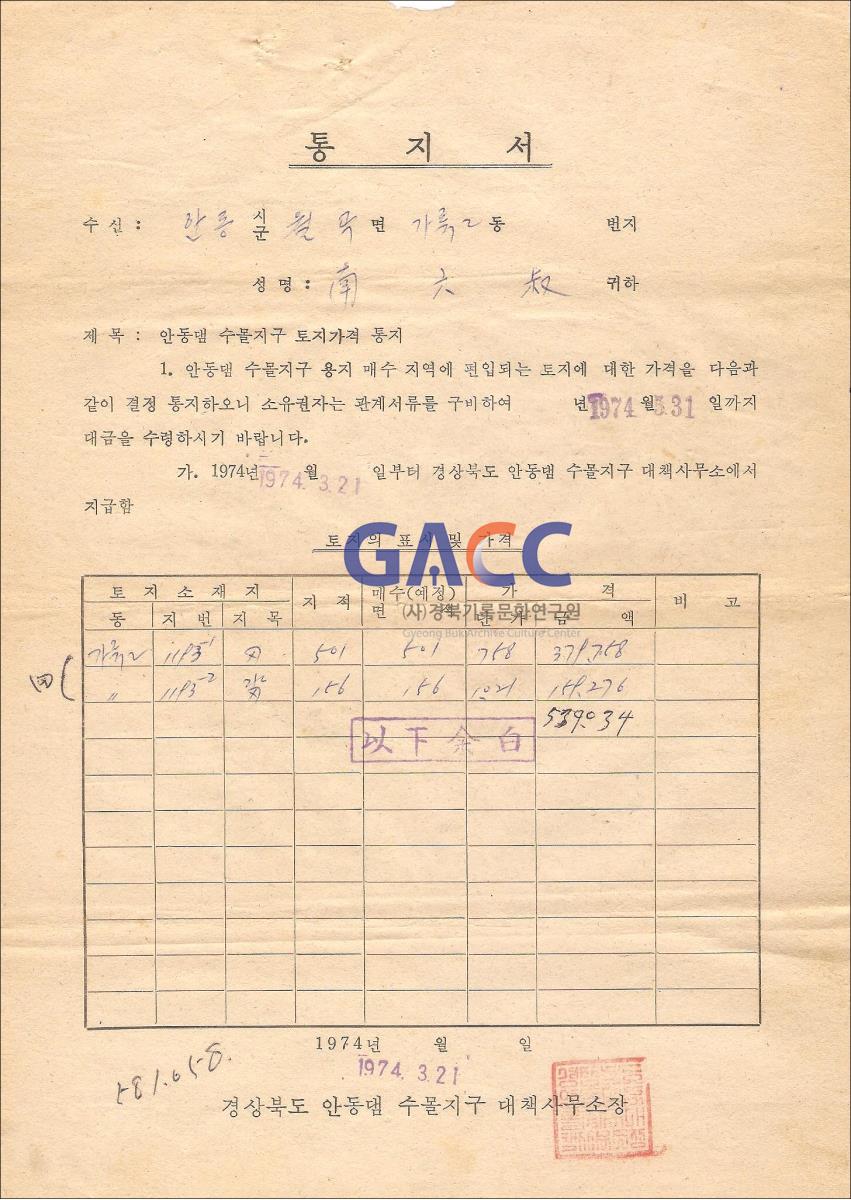 통 지 서
수신 : 안동 시군 월곡 면 가류2 동 번지
성명 : 南 六 叔 귀하
제 목 : 안동댐 수몰지구 토지가격 통지
1. 안동댐 수몰지구 용지 매수 지역에 편입되는 토지에 대한 가격을 다음과
같이 결정 통지하오니 소유권자는 관계서류를 구비하여 년 1974 월 5.31 일까지
대금을 수령하시기 바랍니다.
가. 1974년 월 일부터 경상북도 안동댐 수몰지구 대책사무소에서
1974. 3.21
지급함
토지의 표시 및 가격
GACC
(사)경북기록문화연구원
Gyeong Buk Archive Culture Center
토 지 소 재 지 지 적 매수(예정) 면 적 가 격 비 고
동 지 번 지 목 단 가 금 액
가류2 1193-1 501 501 758 379,758
〃 1193-2 156 156 1021 159,276
539034
以下余白
1974년 월 일
1974. 3.21
581.058.
경상북도 안동댐 수몰지구 대책사무소장